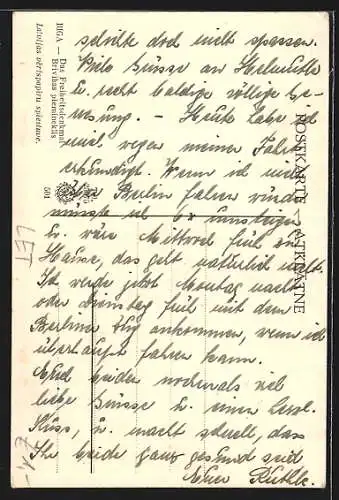 RIGA — Das Freiheitsdenkmal
Brīvības piemineklis
Latvijas vērtspapīru spiestuve.
501
POSTKARTE - ATKLĀTNE
sollte doch nicht spassen.
Viele Grüsse an Helmuth
u. recht baldige völlige Ge-
nesung. - Heute habe ich
mich wegen meiner Fahrt
erkundigt. Wenn ich nicht
über Berlin fahren würde
müsste ich 6x umsteigen
u. wäre Mittwoch früh zu
Hause, das geht natürlich nicht.
Ich werde jetzt Montag nacht
oder Dienstag früh mit dem
Berliner Zug ankommen, wenn ich
überhaupt fahren kann.
Euch beiden nochmals viel
liebe Grüsse u. einen herzl.
Kuss, u. macht schnell, das
Ihr beide ganz gesund seid
Eure
LET